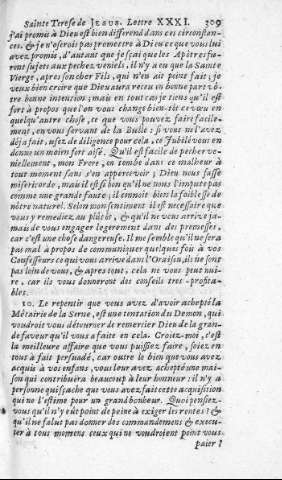 Sainte Terese de JESUS. Lettre XXXI. 309
j'ai promis à Dieu est bien different dans ces circonstan-
ces, & je n'oserois pas promettre à Dieu ce que vous lui
avez promis, d'autant que je sçai que les Apôtres fu-
rent sujets aux pechez veniels, il n'y a eu que la Sainte
Vierge, apres son cher Fils, qui n'en ait point fait; je
veux bien croire que Dieu aura receu en bonne part vô-
tre bonne intention, mais en tout cas je tiens qu'il est
fort à propos que l'on vous change bien-tôt ce vœu en
quelqu'autre chose, ce que vous pouvez faire facile-
ment, en vous servant de la Bulle: si vous ne l'avez
déja fait, usez de diligence pour cela, ce Jubilé vous en
donne un moien fort aisé. Qu'il est facile de pecher ve-
niellement, mon Frere, on tombe dans ce malheur à
tout moment sans s'en appercevoir; Dieu nous fasse
misericorde, mais il est si bon qu'il ne nous l'impute pas
comme une grande faute; il connoit bien la foiblesse de
nôtre naturel. Selon mon sentiment il est necessaire que
vous y remediez au plûtôt, & qu'il ne vous arrive ja-
mais de vous engager legerement dans des promesses,
car c'est une chose dangereuse. Il me semble qu'il ne sera
pas mal à propos de communiquer quelques fois à vos
Confesseurs ce qui vous arrive dans l'Oraison, ils ne sont
pas loin de vous, & apres tout, cela ne vous peut nui-
re, car ils vous donneront des conseils tres-profita-
bles.
10. Le repentir que vous avez d'avoir acheptè la
Métairie de la Serne, est une tentation du Demon, qui
voudroit vous détourner de remercier Dieu de la gran-
de faveur qu'il vous a faite en cela. Croiez-moi, c'est
la meilleure affaire que vous puissiez faire, soiez en
tout à fait persuadé, car outre le bien que vous avez
acquis à vos enfans, vous leur avez acheptè une mai-
son qui contribuëra beaucoup à leur honneur; il n'y a
personne qui sçache que vous avez fait cette acquisition
qui ne l'estime pour un grand bonheur. Quoi pensez-
vous qu'il n'y eût point de peine à exiger les rentes? &
qu'il ne falut pas donner des commandemens & execu-
ter à tous momens ceux qui ne voudroient point vous
paier?